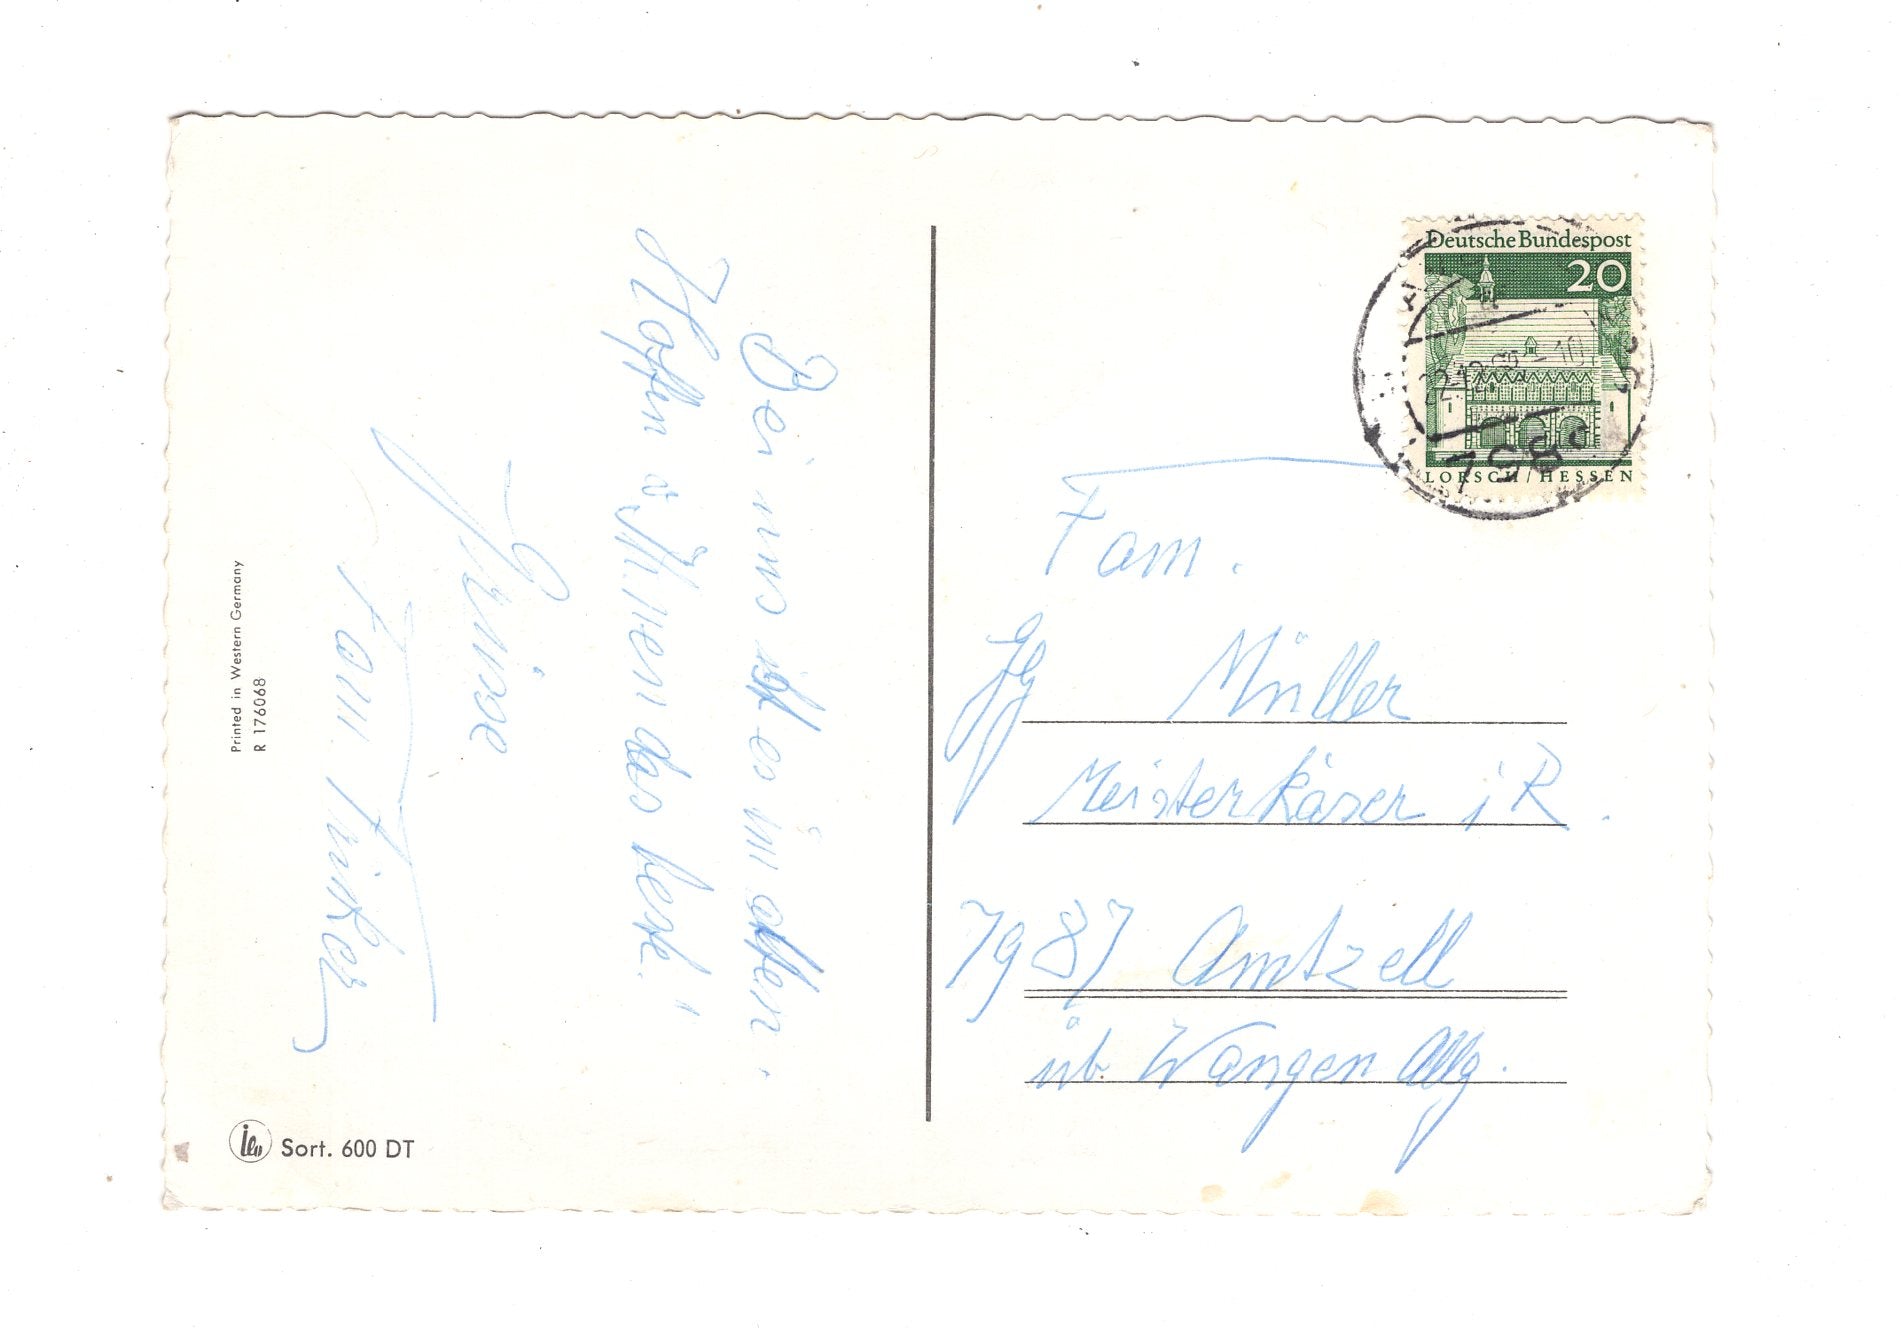 Bei uns ist es im alten.
Hoffen v Ihnen das beste!
Grüsse
Fam.
Printed in Western Germany
R 176068
Sort. 600 DT
Deutsche Bundespost
20
LORSCH/HESSEN
22.12.
Fam.
Müller
Meisterkäser i R.
7987 Amtzell
üb. Wangen Allg.